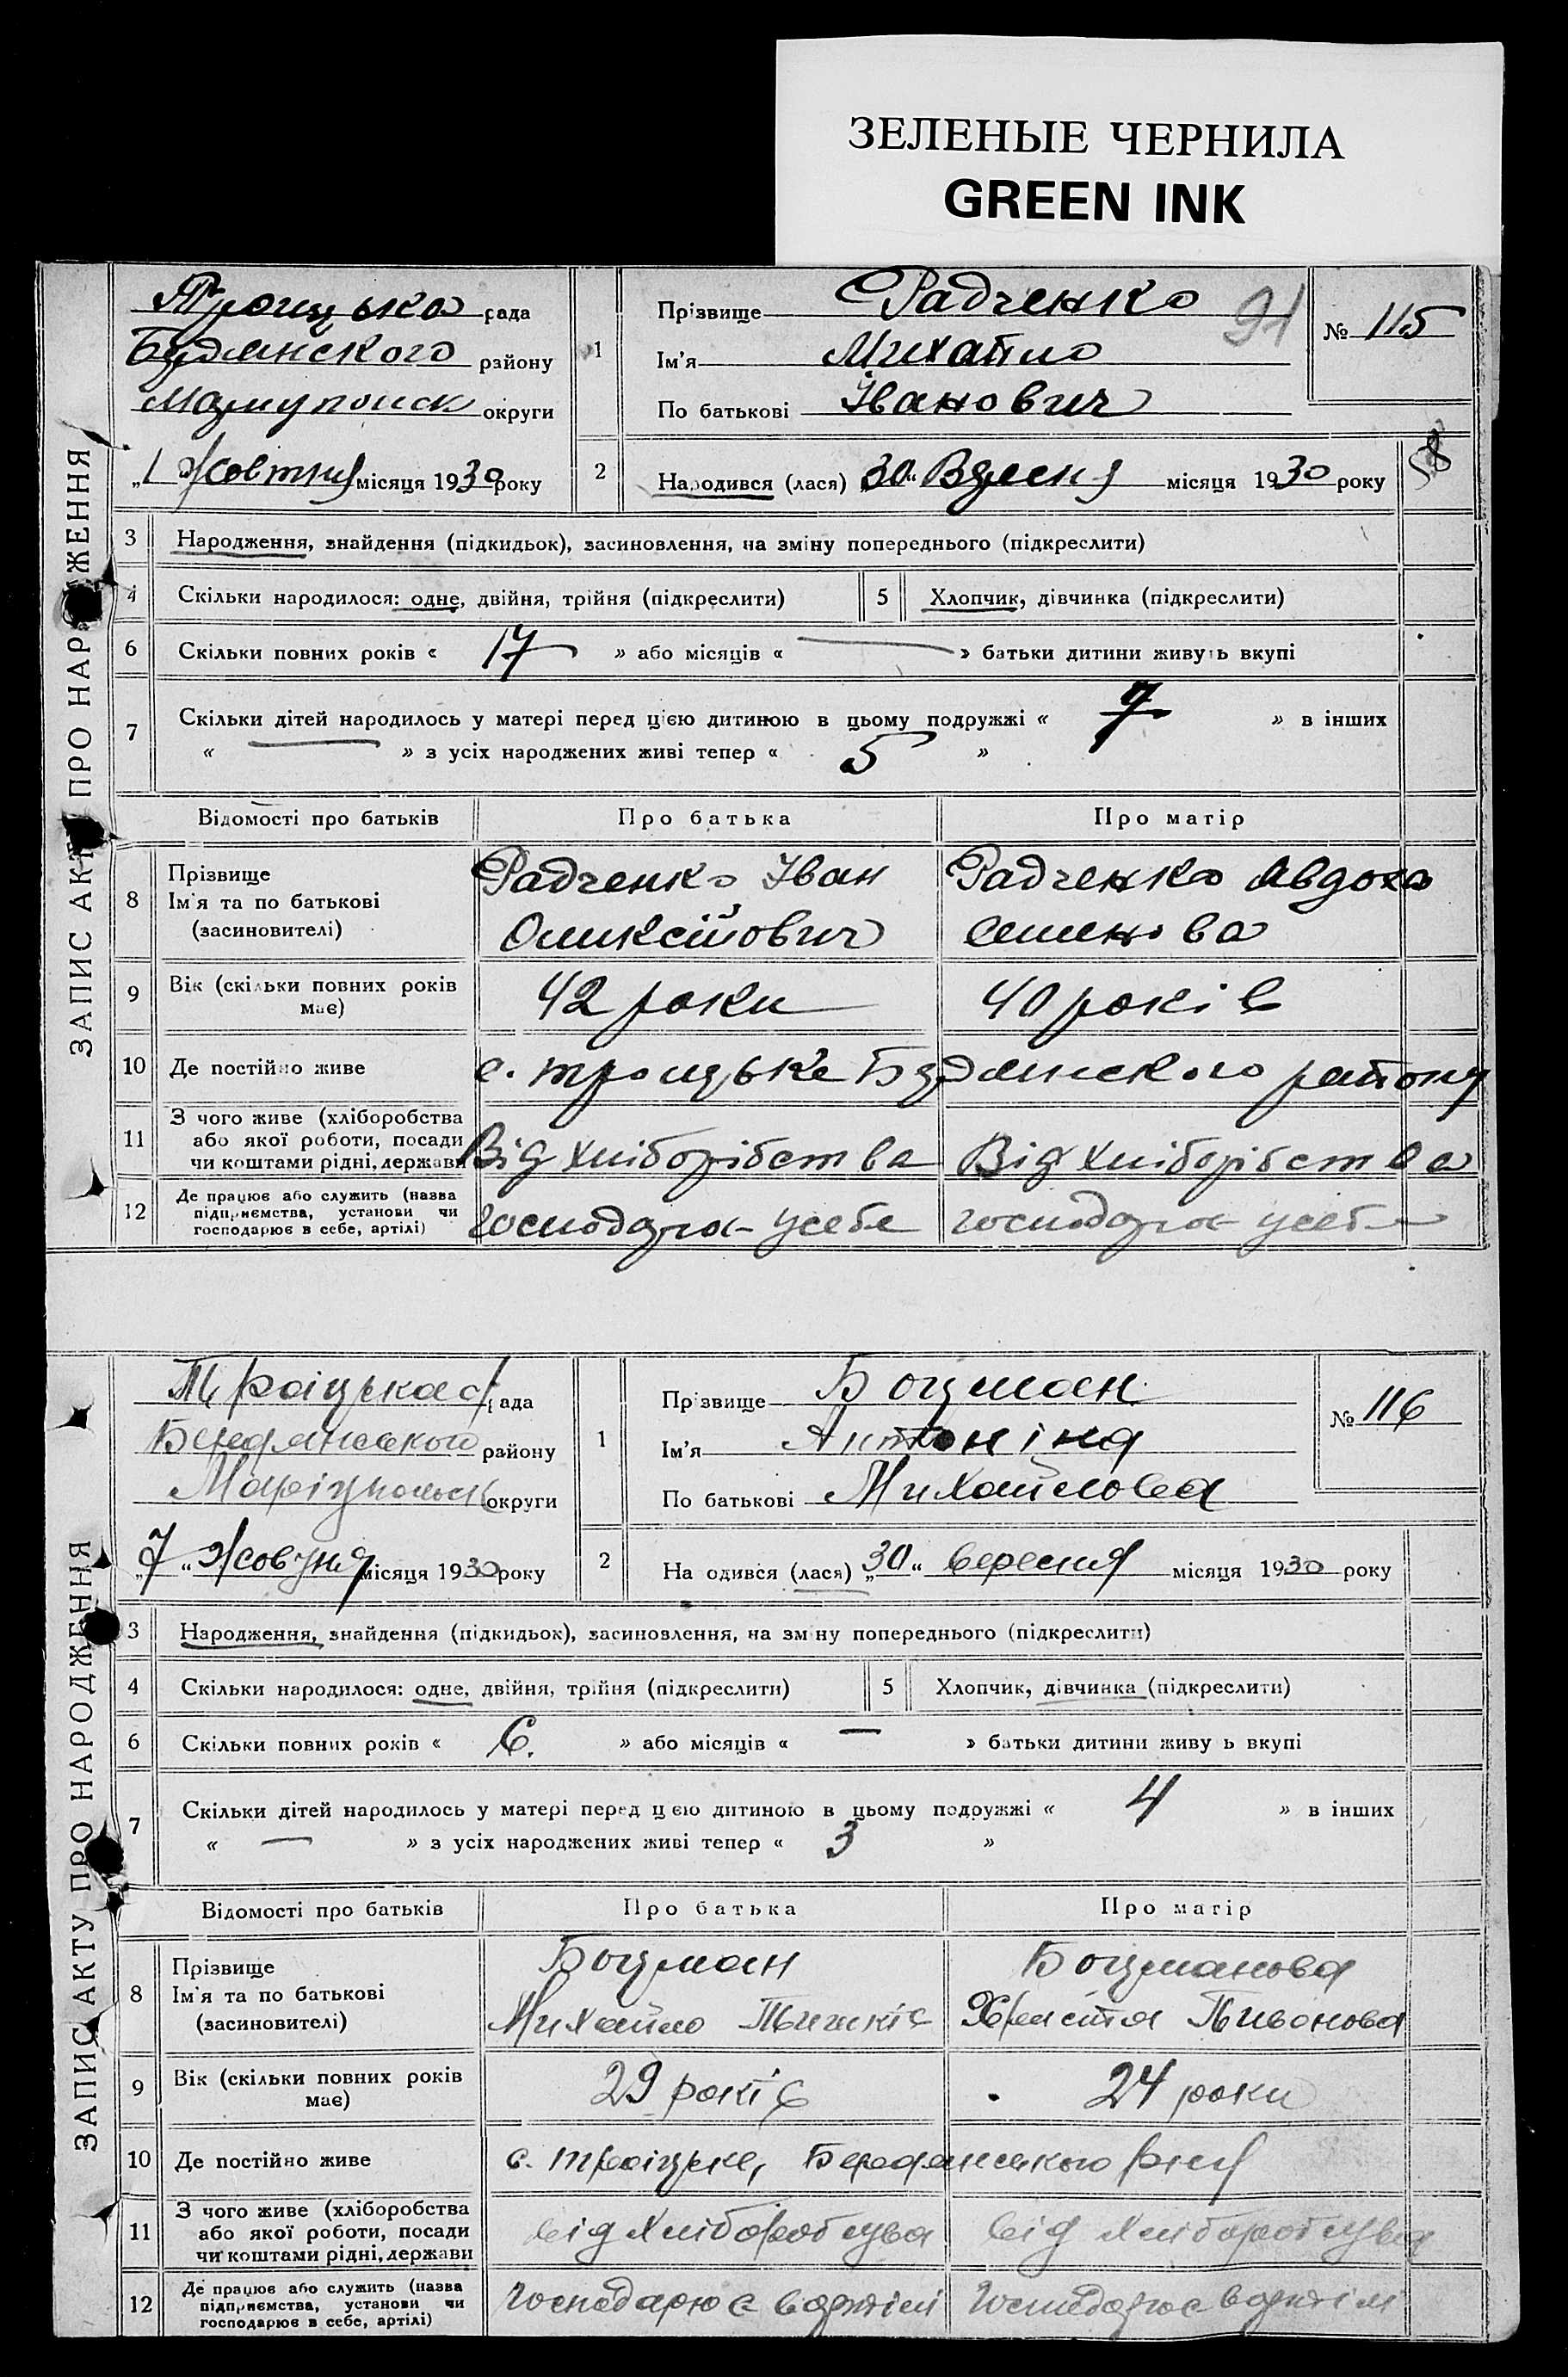 ЗЕЛЕНЫЕ ЧЕРНИЛА
GREEN INK
ЗАПИС АКТУ ПРО НАРОДЖЕННЯ
Троицька рада
району
округи
„1 Жовтня місяця 1930 року
1
Прізвище Радченко
Ім'я Михайло
По батькові Іванович
91
№ 115
58
2
Народився (лася) „30“ місяця 1930 року
3 Народження, знайдення (підкидьок), засиновлення, на зміну попереднього (підкреслити)
4 Скільки народилося: одне, двійня, трійня (підкреслити) 5 Хлопчик, дівчинка (підкреслити)
6 Скільки повних років « 17 » або місяців « — » батьки дитини живуть вкупі
7 Скільки дітей народилось у матері перед цією дитиною в цьому подружжі « 7 » в інших
« — » з усіх народжених живі тепер « 5 »
Відомості про батьків Про батька Про матір
8 Прізвище Ім'я та по батькові (засиновителі)
Радченко Іван
Радченко Авдоха
Семенова
9 Вік (скільки повних років має) 42 роки 40 років
10 Де постійно живе с. Троицьке району
11 З чого живе (хліборобства або якої роботи, посади чи коштами рідні, держави Від хліборібства Від хліборібства
12 Де працює або служить (назва підприємства, установи чи господарює в себе, артілі) усебе усебе
ЗАПИС АКТУ ПРО НАРОДЖЕННЯ
Троіцька рада
району
округи
„7“ місяця 1930 року
1
Прізвище Боцман
Ім'я Антоніна
По батькові Михайлова
№ 116
2
Народився (лася) „30“ вересня місяця 1930 року
3 Народження, знайдення (підкидьок), засиновлення, на зміну попереднього (підкреслити)
4 Скільки народилося: одне, двійня, трійня (підкреслити) 5 Хлопчик, дівчинка (підкреслити)
6 Скільки повних років « 6. » або місяців « — » батьки дитини живуть вкупі
7 Скільки дітей народилось у матері перед цією дитиною в цьому подружжі « 4 » в інших
« — » з усіх народжених живі тепер « 3 »
Відомості про батьків Про батька Про матір
8 Прізвище Ім'я та по батькові (засиновителі)
Боцман
Михайло
Боцманова
9 Вік (скільки повних років має) 29 років 24 роки
10 Де постійно живе с. Троіцьке,
11 З чого живе (хліборобства або якої роботи, посади чи коштами рідні, держави від від
12 Де працює або служить (назва підприємства, установи чи господарює в себе, артілі) Господарює в артілі Господарює в артілі